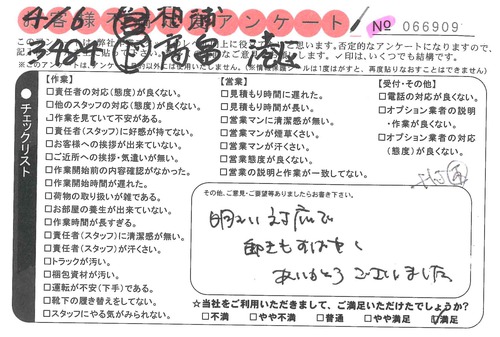 お客様不満足アンケート
No 066909
4-26
3484
高畠
※このアンケートは、
チェックリスト
【作業】
□責任者の対応(態度)が良くない。
□他のスタッフの対応(態度)が良くない。
□作業を見ていて不安がある。
□責任者(スタッフ)に好感が持てない。
□お客様への挨拶が出来ていない。
□ご近所への挨拶・気遣いが無い。
□作業開始前の内容確認がなかった。
□作業開始時間が遅れた。
□荷物の取り扱いが雑である。
□お部屋の養生が出来ていない。
□作業時間が長すぎる。
□責任者(スタッフ)に清潔感が無い。
□責任者(スタッフ)が汗くさい。
□トラックが汚い。
□梱包資材が汚い。
□運転が不安(下手)である。
□靴下の履き替えをしてない。
□スタッフにやる気がみられない。
【営業】
□見積もり時間に遅れた。
□見積もり時間が長い。
□営業マンに清潔感が無い。
□営業マンが煙草くさい。
□営業マンが汗くさい。
□営業態度が良くない。
□営業の説明と作業が一致してない。
【受付・その他】
□電話の対応が良くない。
□オプション業者の説明
・作業が良くない。
□オプション業者の対応
(態度)が良くない。
その他、ご意見・ご要望等ありましたらお書き下さい。
明るい対応で
動きもすばやく
ありがとうございました
☆当社をご利用いただきまして、ご満足いただけたでしょうか?
□不満 □やや不満 □普通 □やや満足 □満足